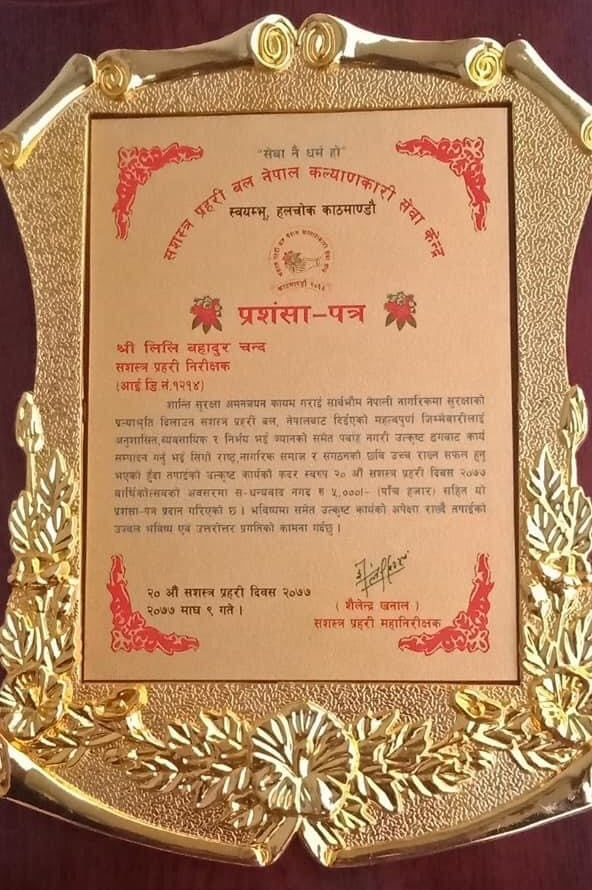 "सेवा नै धर्म हो"
सशस्त्र प्रहरी बल नेपाल कल्याणकारी सेवा केन्द्र
स्वयम्भू, हलचोक काठमाण्डौ
प्रशंसा-पत्र
श्री लिलि बहादुर चन्द
सशस्त्र प्रहरी निरीक्षक
(आई डि नं.१२१४)
शान्ति सुरक्षा अमनचयन कायम गराई सार्वभौम नेपाली नागरिकमा सुरक्षाको
प्रत्याभूति दिलाउन सशस्त्र प्रहरी बल, नेपालबाट दिईएको महत्वपुर्ण जिम्मेवारीलाई
अनुशासित,व्यवसायिक र निर्भय भई ज्यानको समेत पर्वाह नगरी उत्कृष्ट ढंगबाट कार्य
सम्पादन गर्नु भई सिंगो राष्ट्र,नागरिक समाज र संगठनको छवि उच्च राख्न सफल हुनु
भएको हुँदा तपाईंको उत्कृष्ट कार्यको कदर स्वरुप २० औं सशस्त्र प्रहरी दिवस २०७७
वार्षिकोत्सवको अवसरमा स-धन्यवाद नगद रु ५,०००।- (पाँच हजार) सहित यो
प्रशंसा-पत्र प्रदान गरिएको छ । भविष्यमा समेत उत्कृष्ट कार्यको अपेक्षा राख्दै तपाईंको
उज्वल भविष्य एवं उत्तरोत्तर प्रगतिको कामना गर्दछु ।
२० औं सशस्त्र प्रहरी दिवस २०७७
२०७७ माघ ९ गते ।
( शैलेन्द्र खनाल )
सशस्त्र प्रहरी महानिरीक्षक